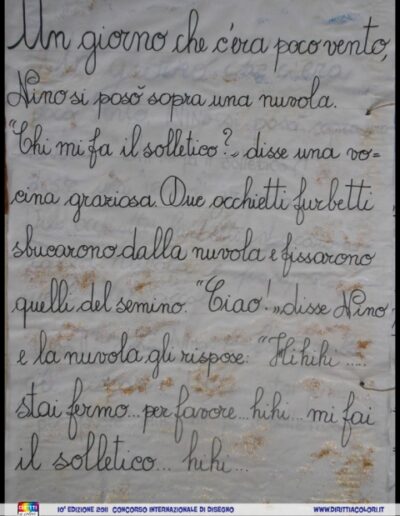 Un giorno che c'era poco vento,
Nino si posò sopra una nuvola.
"Chi mi fa il solletico?„ disse una vo=
cina graziosa. Due occhietti furbetti
sbucarono dalla nuvola e fissarono
quelli del semino. "Ciao!„ disse Nino
e la nuvola gli rispose: "Hihihi .....
stai fermo... per favore... hihi... mi fai
il solletico... hihi...
10ª EDIZIONE 2011 CONCORSO INTERNAZIONALE DI DISEGNO
WWW.DIRITTIACOLORI.IT